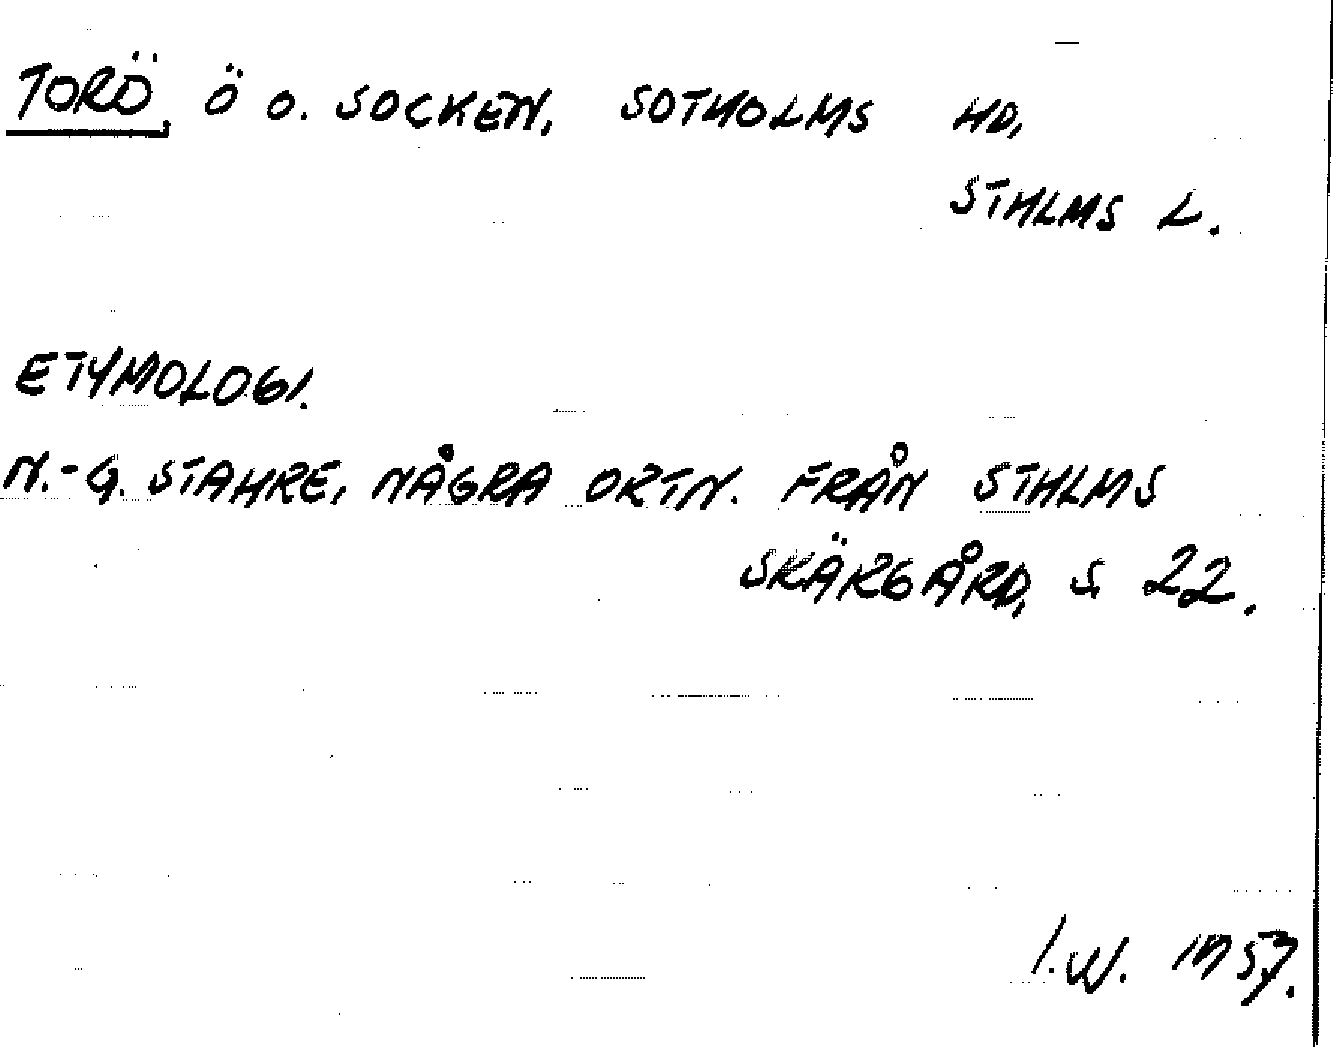 TORÖ, Ö O. SOCKEN, SOTHOLMS HD,
STHLMS L.
ETYMOLOGI.
N.-G. STAHRE, NÅGRA ORTN. FRÅN STHLMS
SKÄRGÅRD, S 22.
I.W. 1957.